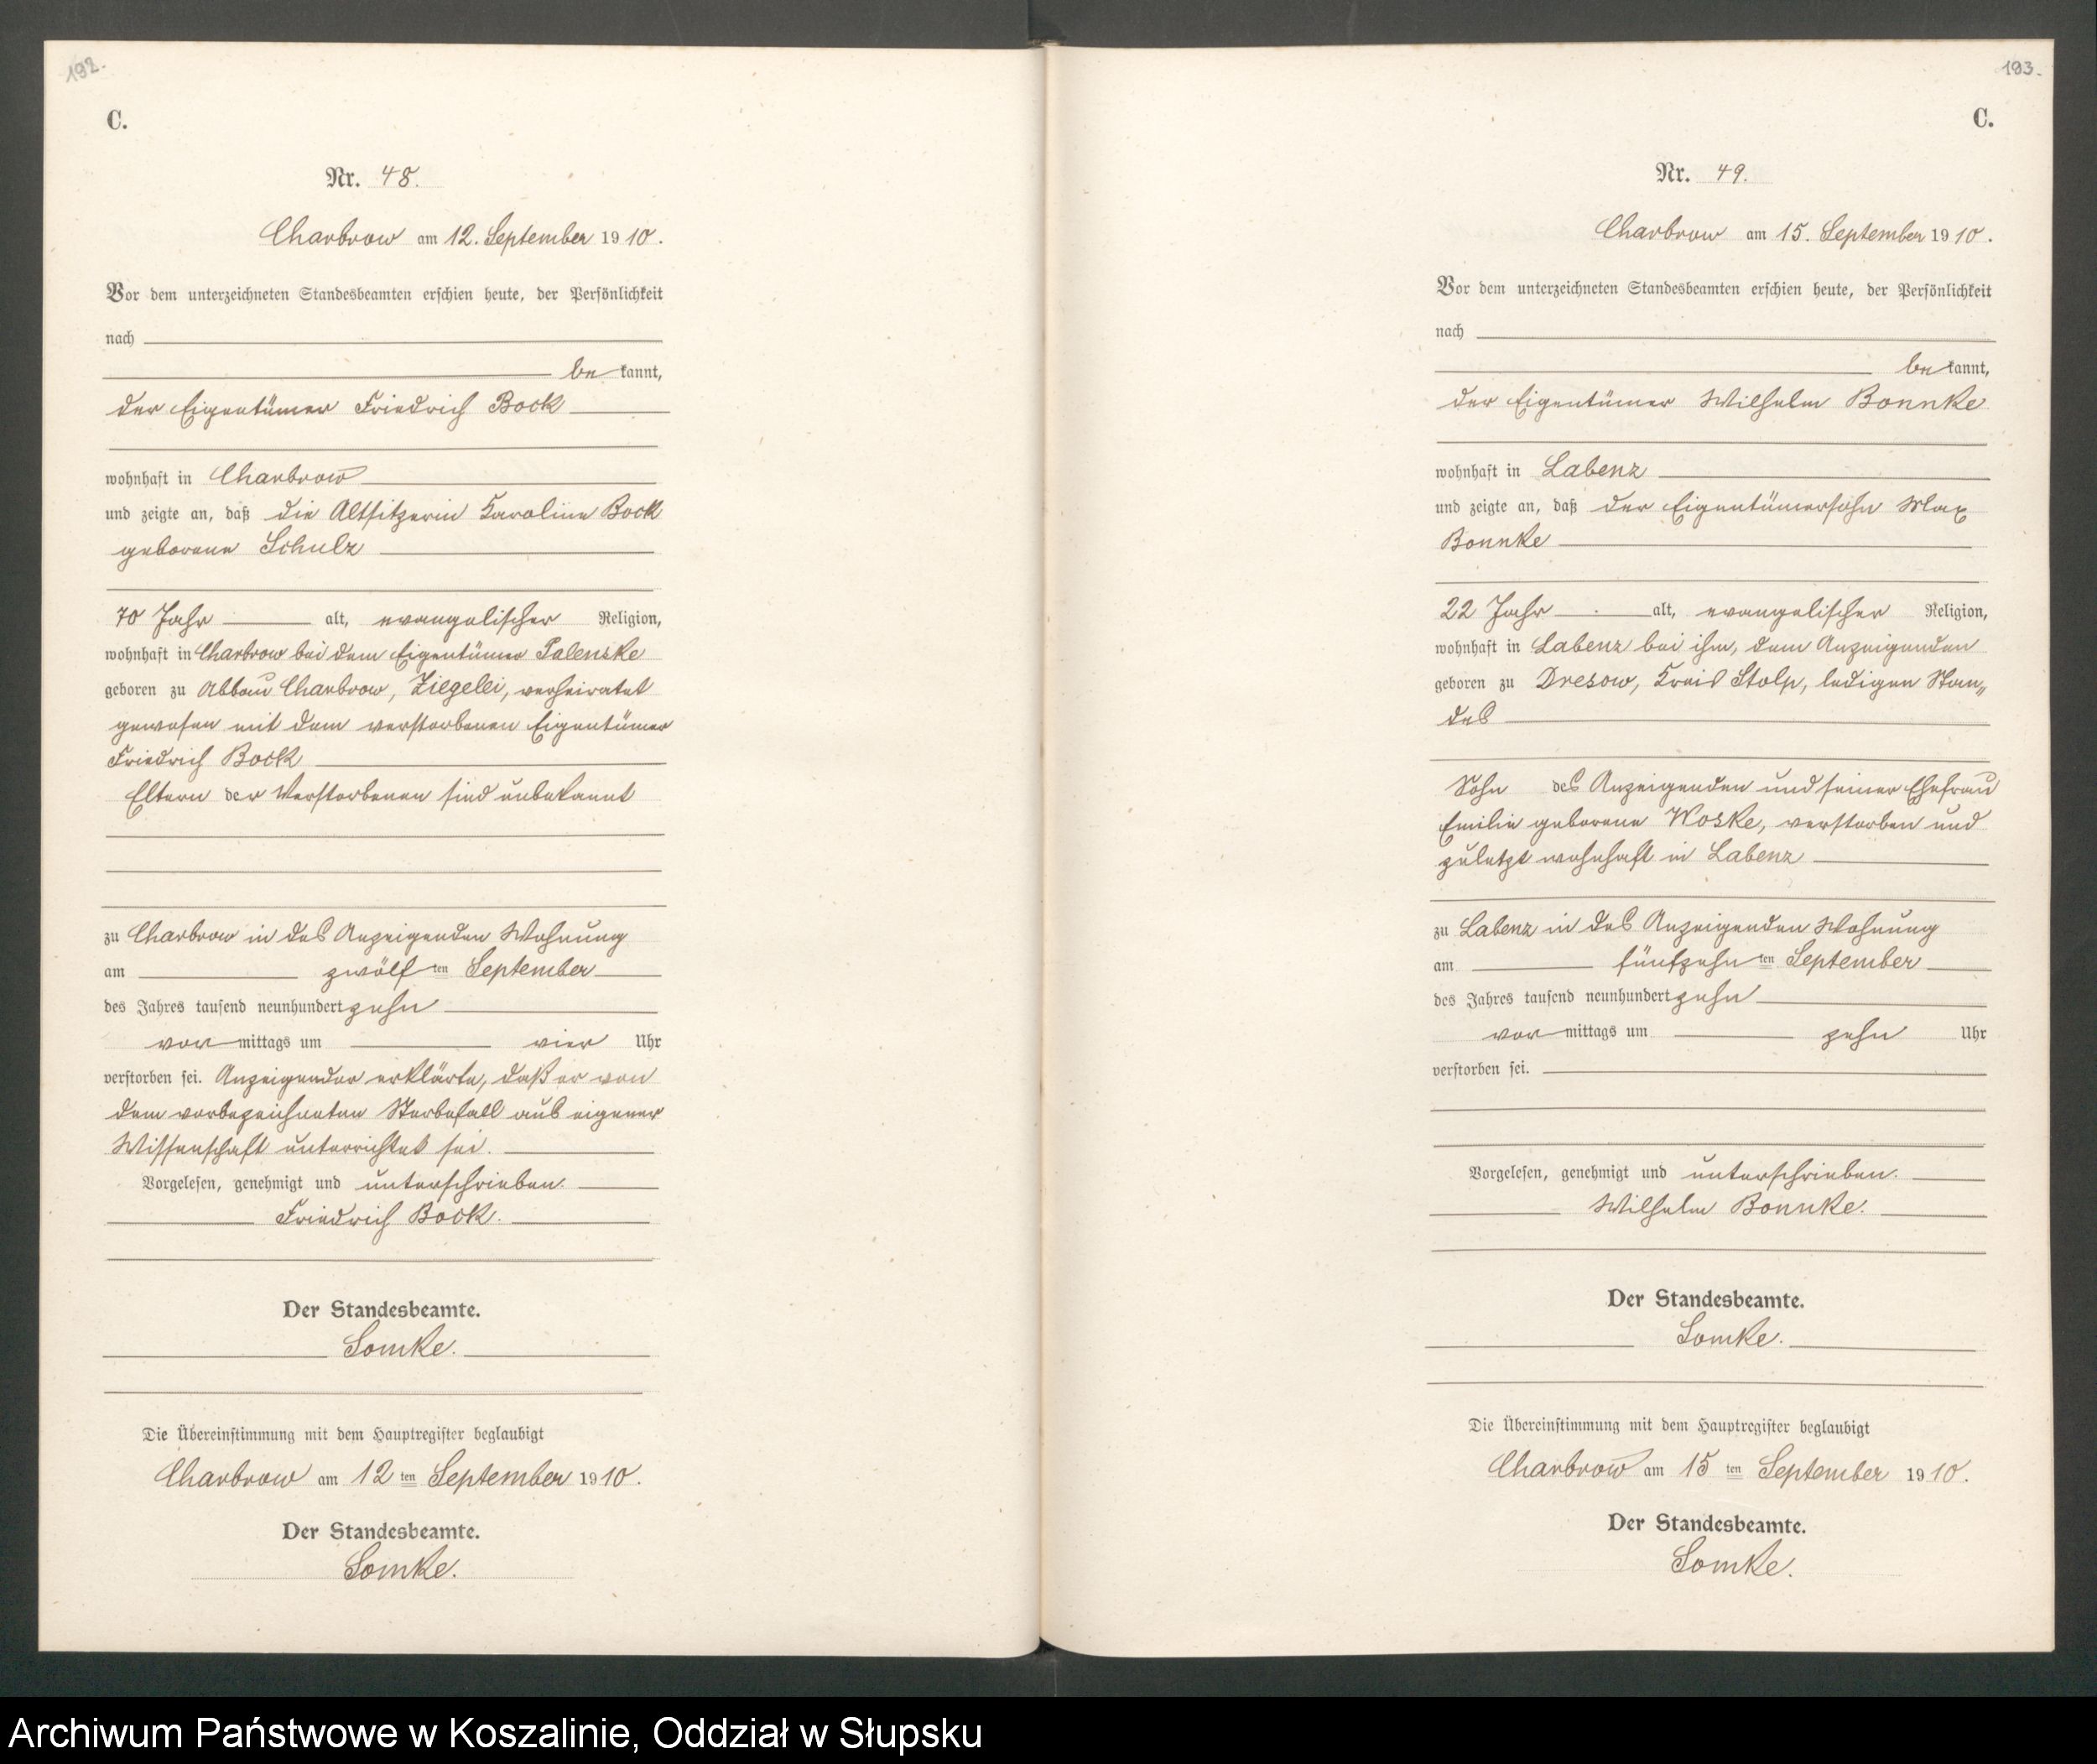 192.
C.
Nr. 48.
Charbrow am 12. September 1910.
Vor dem unterzeichneten Standesbeamten erschien heute, der Persönlichkeit
nach
be kannt,
der Eigentümer Friedrich Bock
wohnhaft in Charbrow
und zeigte an, daß die Altsitzerin Karoline Bock
geborene Schulz
70 Jahr alt, evangelischer Religion,
wohnhaft in Charbrow bei dem Eigentümer Palenske
geboren zu Abbau Charbrow, Ziegelei, verheiratet
gewesen mit dem verstorbenen Eigentümer
Friedrich Bock
Eltern der Verstorbenen sind unbekannt
zu Charbrow in des Anzeigenden Wohnung
am zwölf ten September
des Jahres tausend neunhundert zehn
vor mittags um vier Uhr
verstorben sei. Anzeigender erklärte, daß er von
dem vorbezeichneten Sterbefall aus eigener
Wissenschaft unterrichtet sei.
Vorgelesen, genehmigt und unterschrieben.
Friedrich Bock.
Der Standesbeamte.
Lomke.
Die Übereinstimmung mit dem Hauptregister beglaubigt
Charbrow am 12 ten September 1910.
Der Standesbeamte.
Lomke.
193.
C.
Nr. 49.
Charbrow am 15. September 1910.
Vor dem unterzeichneten Standesbeamten erschien heute, der Persönlichkeit
nach
be kannt,
der Eigentümer Wilhelm Bonnke
wohnhaft in Labenz
und zeigte an, daß der Eigentümersohn Max
Bonnke
22 Jahr alt, evangelischer Religion,
wohnhaft in Labenz bei ihm, dem Anzeigenden
geboren zu Dresow, Kreis Stolp, ledigen Stan„
des
Sohn des Anzeigenden und seiner Ehefrau
Emilie geborene Woske, verstorben und
zuletzt wohnhaft in Labenz
zu Labenz in des Anzeigenden Wohnung
am fünfzehn ten September
des Jahres tausend neunhundert zehn
vor mittags um zehn Uhr
verstorben sei.
Vorgelesen, genehmigt und unterschrieben.
Wilhelm Bonnke.
Der Standesbeamte.
Lomke.
Die Übereinstimmung mit dem Hauptregister beglaubigt
Charbrow am 15 ten September 1910.
Der Standesbeamte.
Lomke.
Archiwum Państwowe w Koszalinie, Oddział w Słupsku